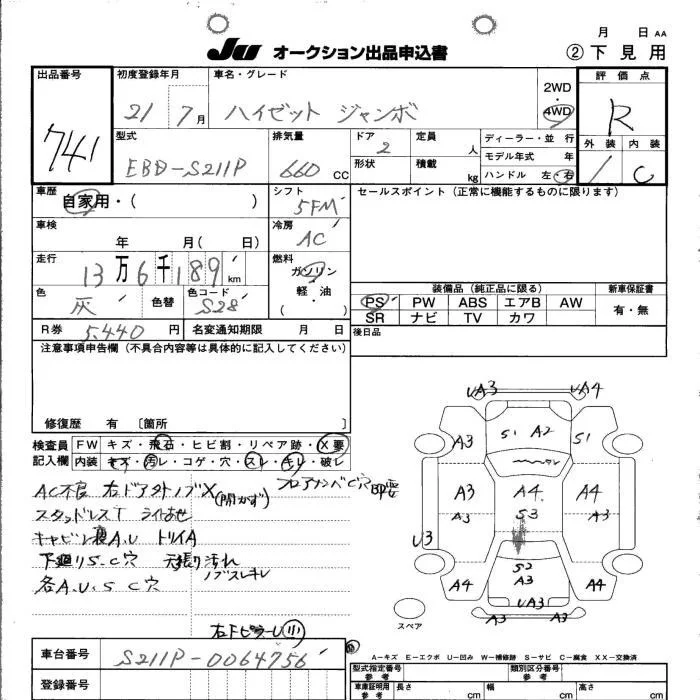 月 日 AA
JU オークション出品申込書 ② 下見用
出品番号 初度登録年月 車名・グレード 2WD・4WD 評価点
741 21 7月 ハイゼット ジャンボ R
型式 排気量 ドア 定員 ディーラー・並 行 外装 内装
EBD-S211P 660 CC 2 人 モデル年式 年 1 C
形状 積載 kg ハンドル 左・右
車歴 自家用・( ) シフト 5FM セールスポイント(正常に機能するものに限ります)
車検 年 月( 日) 冷房 AC
走行 13万6千189km 燃料 ガソリン 軽・油 ( )
装備品(純正品に限る) 新車保証書
色 灰 色替 色コード S28
PS PW ABS エアB AW 有・無
SR ナビ TV カワ
R券 5,440円 名変通知期限 月 日 後日品
注意事項申告欄(不具合内容等は具体的に記入してください)
修復歴 有 [箇所 ]
検査員 FW キズ・飛石・ヒビ割・リペア跡・X要
記入欄 内装 キズ・汚レ・コゲ・穴・スレ・キレ・破レ
AC不良 右ドアアウトノブX(開かず) フロアメンバC穴
スタッドレスT
キャビン裏A、U トリイA
下廻りS、C穴 天張り汚れ
ノブスレキレ
各A、U、S C穴
右FピラーU
UA3 UA4
A3 S1 A2 S1
A3 A4 A4
A3 S3 A3
U3
S2
A4 A3 A4
UA3
A3 A3
スペア
A-キズ E-エクボ U-凹み W-補修跡 S-サビ C-腐食 XX-交換済
車台番号 S211P-0064756
型式指定番号 参考 類別区分番号 参考
登録番号 車庫証明用 参考 長さ cm 幅 cm 高さ cm